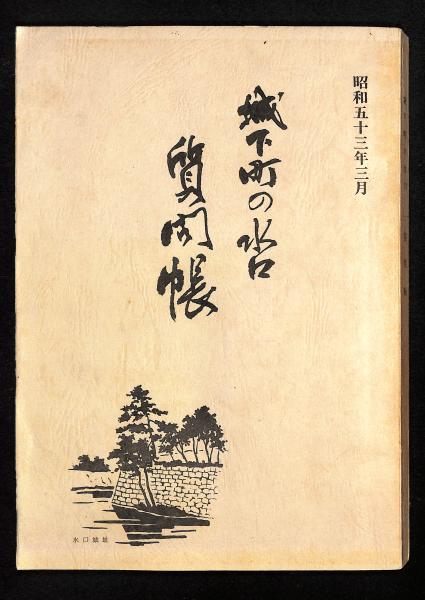 昭和五十三年三月
城下町の水口
質問帳
水口城址